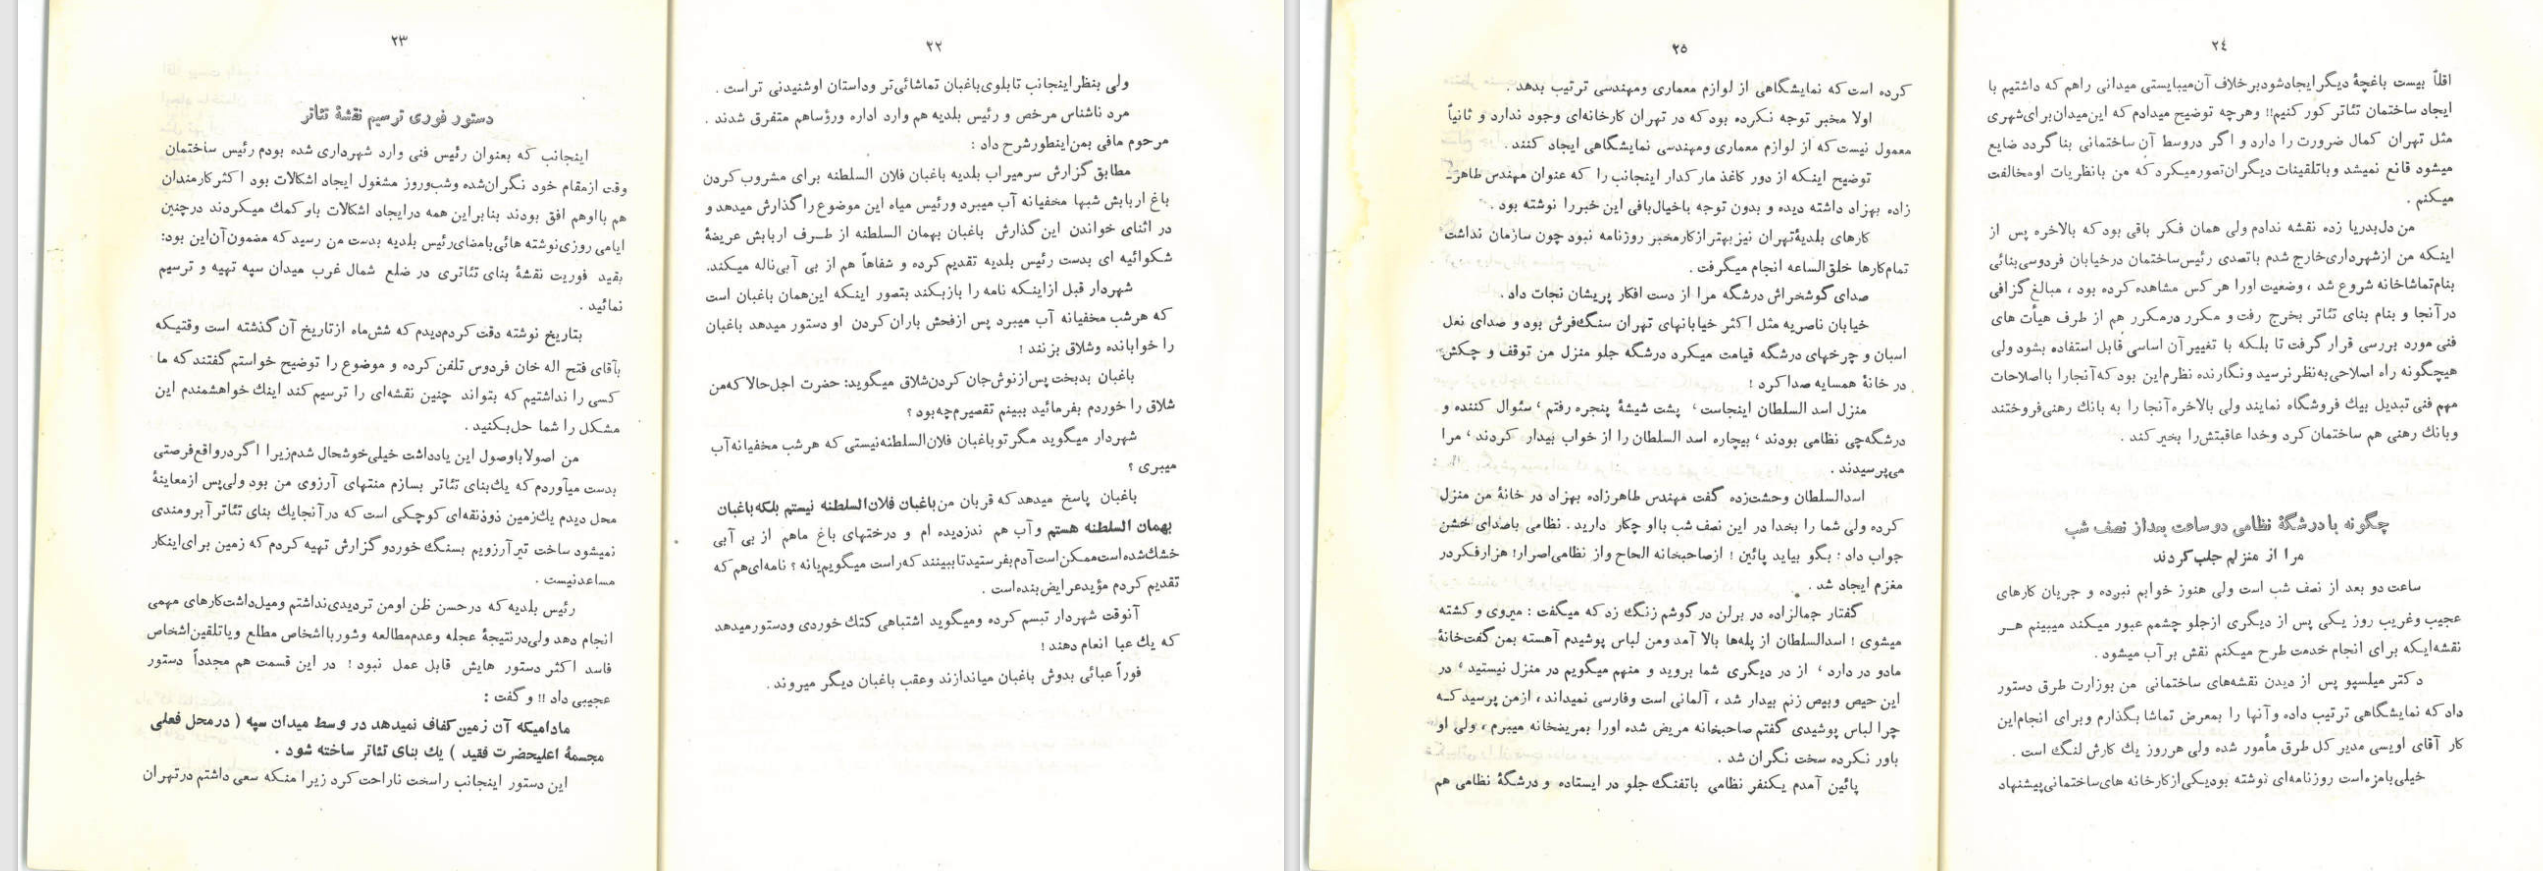 ۲۲
ولی بنظر اینجانب تابلوی باغبان تماشائی‌تر و داستان او شنیدنی تر است .
مرد ناشناس مرخص و رئیس بلدیه هم وارد اداره و رؤسا هم متفرق شدند .
مرحوم مافی بمن اینطور شرح داد :
مطابق گزارش سرمیراب بلدیه باغبان فلان السلطنه برای مشروب کردن
باغ اربابش شبها مخفیانه آب میبرد و رئیس میاه این موضوع را گذارش میدهد و
در اثنای خواندن این گذارش باغبان بهمان السلطنه از طـرف اربابش عریضهٔ
شکوائیه ای بدست رئیس بلدیه تقدیم کرده و شفاهاً هم از بی آبی ناله میکند.
شهردار قبل از اینکه نامه را باز بکند بتصور اینکه این همان باغبان است
که هر شب مخفیانه آب میبرد پس از فحش باران کردن او دستور میدهد باغبان
را خوابانده و شلاق بزنند !
باغبان بدبخت پس از نوش جان کردن شلاق میگوید: حضرت اجل حالا که من
شلاق را خوردم بفرمائید ببینم تقصیرم چه بود ؟
شهردار میگوید مگر تو باغبان فلان السلطنه نیستی که هر شب مخفیانه آب
میبری ؟
باغبان پاسخ میدهد که قربان من باغبان فلان السلطنه نیستم بلکه باغبان
بهمان السلطنه هستم و آب هم ندزدیده ام و درختهای باغ ماهم از بی آبی
خشک شده است ممکن است آدم بفرستید تا ببینند که راست میگویم یا نه ؟ نامه‌ای هم که
تقدیم کردم مؤید عرایض بنده است .
آنوقت شهردار تبسم کرده و میگوید اشتباهی کتک خوردی و دستور میدهد
که یک عبا انعام دهند !
فوراً عبائی بدوش باغبان میاندازند و عقب باغبان دیگر میروند .
۲۳
دستور فوری ترسیم نقشهٔ تئاتر
اینجانب که بعنوان رئیس فنی وارد شهرداری شده بودم رئیس ساختمان
وقت از مقام خود نگران شده و شب و روز مشغول ایجاد اشکالات بود اکثر کارمندان
هم با او هم افق بودند بنابراین همه در ایجاد اشکالات باو کمک میکردند در چنین
ایامی روزی نوشته هائی بامضای رئیس بلدیه بدست من رسید که مضمون آن این بود:
بقید فوریت نقشهٔ بنای تئاتری در ضلع شمال غرب میدان سپه تهیه و ترسیم
نمائید .
بتاریخ نوشته دقت کردم دیدم که شش ماه از تاریخ آن گذشته است وقتیکه
بآقای فتح اله خان فردوس تلفن کرده و موضوع را توضیح خواستم گفتند که ما
کسی را نداشتیم که بتواند چنین نقشه‌ای را ترسیم کند اینک خواهشمندم این
مشکل را شما حل بکنید .
من اصولا باوصول این یادداشت خیلی خوشحال شدم زیرا اگر در واقع فرصتی
بدست میآوردم که یک بنای تئاتر بسازم منتهای آرزوی من بود ولی پس از معاینهٔ
محل دیدم یک زمین ذوذنقه‌ای کوچکی است که در آنجا یک بنای تئاتر آبرومندی
نمیشود ساخت تیر آرزویم بسنگ خورد و گزارش تهیه کردم که زمین برای اینکار
مساعد نیست .
رئیس بلدیه که در حسن ظن او من تردیدی نداشتم و میل داشت کارهای مهمی
انجام دهد ولی در نتیجهٔ عجله و عدم مطالعه و شور با اشخاص مطلع و یا تلقین اشخاص
فاسد اکثر دستور هایش قابل عمل نبود ! در این قسمت هم مجدداً دستور
عجیبی داد !! و گفت :
مادامیکه آن زمین کفاف نمیدهد در وسط میدان سپه ( در محل فعلی
مجسمهٔ اعلیحضرت فقید ) یک بنای تئاتر ساخته شود .
این دستور اینجانب را سخت ناراحت کرد زیرا منکه سعی داشتم در تهران
۲٤
اقلاً بیست باغچهٔ دیگر ایجاد شود بر خلاف آن میبایستی میدانی را هم که داشتیم با
ایجاد ساختمان تئاتر کور کنیم!! و هرچه توضیح میدادم که این میدان برای شهری
مثل تهران کمال ضرورت را دارد و اگر در وسط آن ساختمانی بنا گردد ضایع
میشود قانع نمیشد و با تلقینات دیگران تصور میکرد که من با نظریات او مخالفت
میکنم .
من دل بدریا زده نقشه ندادم ولی همان فکر باقی بود که بالاخره پس از
اینکه من از شهرداری خارج شدم با تصدی رئیس ساختمان در خیابان فردوسی بنائی
بنام تماشاخانه شروع شد ، وضعیت او را هر کس مشاهده کرده بود ، مبالغ گزافی
در آنجا و بنام بنای تئاتر بخرج رفت و مکرر در مکرر هم از طرف هیأت های
فنی مورد بررسی قرار گرفت تا بلکه با تغییر آن اساسی قابل استفاده بشود ولی
هیچگونه راه اصلاحی به نظر نرسید و نگارنده نظرم این بود که آنجا را با اصلاحات
مهم فنی تبدیل بیک فروشگاه نمایند ولی بالاخره آنجا را به بانک رهنی فروختند
و بانک رهنی هم ساختمان کرد و خدا عاقبتش را بخیر کند .
چگونه با درشگهٔ نظامی دو ساعت بعد از نصف شب
مرا از منزلم جلب کردند
ساعت دو بعد از نصف شب است ولی هنوز خوابم نبرده و جریان کارهای
عجیب و غریب روز یکی پس از دیگری از جلو چشمم عبور میکند میبینم هـر
نقشه‌ایکه برای انجام خدمت طرح میکنم نقش بر آب میشود .
دکتر میلسپو پس از دیدن نقشه‌های ساختمانی من بوزارت طرق دستور
داد که نمایشگاهی ترتیب داده و آنها را بمعرض تماشا بگذارم و برای انجام این
کار آقای اویسی مدیر کل طرق مأمور شده ولی هر روز یک کارش لنگ است .
خیلی بامزه است روزنامه‌ای نوشته بود یکی از کارخانه های ساختمانی پیشنهاد
۲۵
کرده است که نمایشگاهی از لوازم معماری و مهندسی ترتیب بدهد .
اولا مخبر توجه نکرده بود که در تهران کارخانه‌ای وجود ندارد و ثانیاً
معمول نیست که از لوازم معماری و مهندسی نمایشگاهی ایجاد کنند .
توضیح اینکه از دور کاغذ مارکدار اینجانب را که عنوان مهندس طاهر-
زاده بهزاد داشته دیده و بدون توجه باخیال بافی این خبر را نوشته بود .
کارهای بلدیهٔ تهران نیز بهتر از کار مخبر روزنامه نبود چون سازمان نداشت
تمام کارها خلق الساعه انجام میگرفت .
صدای گوشخراش درشگه مرا از دست افکار پریشان نجات داد .
خیابان ناصریه مثل اکثر خیابانهای تهران سنگ فرش بود و صدای نعل
اسبان و چرخهای درشگه قیامت میکرد درشگه جلو منزل من توقف و چکش
در خانهٔ همسایه صدا کرد !
منزل اسد السلطان اینجاست ، پشت شیشهٔ پنجره رفتم ، سئوال کننده و
درشگه‌چی نظامی بودند ، بیچاره اسد السلطان را از خواب بیدار کردند ، مرا
می‌پرسیدند .
اسدالسلطان وحشت‌زده گفت مهندس طاهرزاده بهزاد در خانهٔ من منزل
کرده ولی شما را بخدا در این نصف شب با او چکار دارید . نظامی باصدای خشن
جواب داد : بگو بیاید پائین ! از صاحبخانه الحاح و از نظامی اصرار! هزار فکر در
مغزم ایجاد شد .
گفتار جمالزاده در برلن در گوشم زنگ زد که میگفت : میروی و کشته
میشوی ! اسدالسلطان از پله‌ها بالا آمد و من لباس پوشیدم آهسته بمن گفت خانهٔ
ما دو در دارد ، از در دیگری شما بروید و منهم میگویم در منزل نیستید ، در
این حیص و بیص زنم بیدار شد ، آلمانی است و فارسی نمیداند ، از من پرسید کـه
چرا لباس پوشیدی گفتم صاحبخانه مریض شده او را بمریضخانه میبرم ، ولی او
باور نکرده سخت نگران شد .
پائین آمدم یکنفر نظامی باتفنگ جلو در ایستاده و درشگهٔ نظامی هم